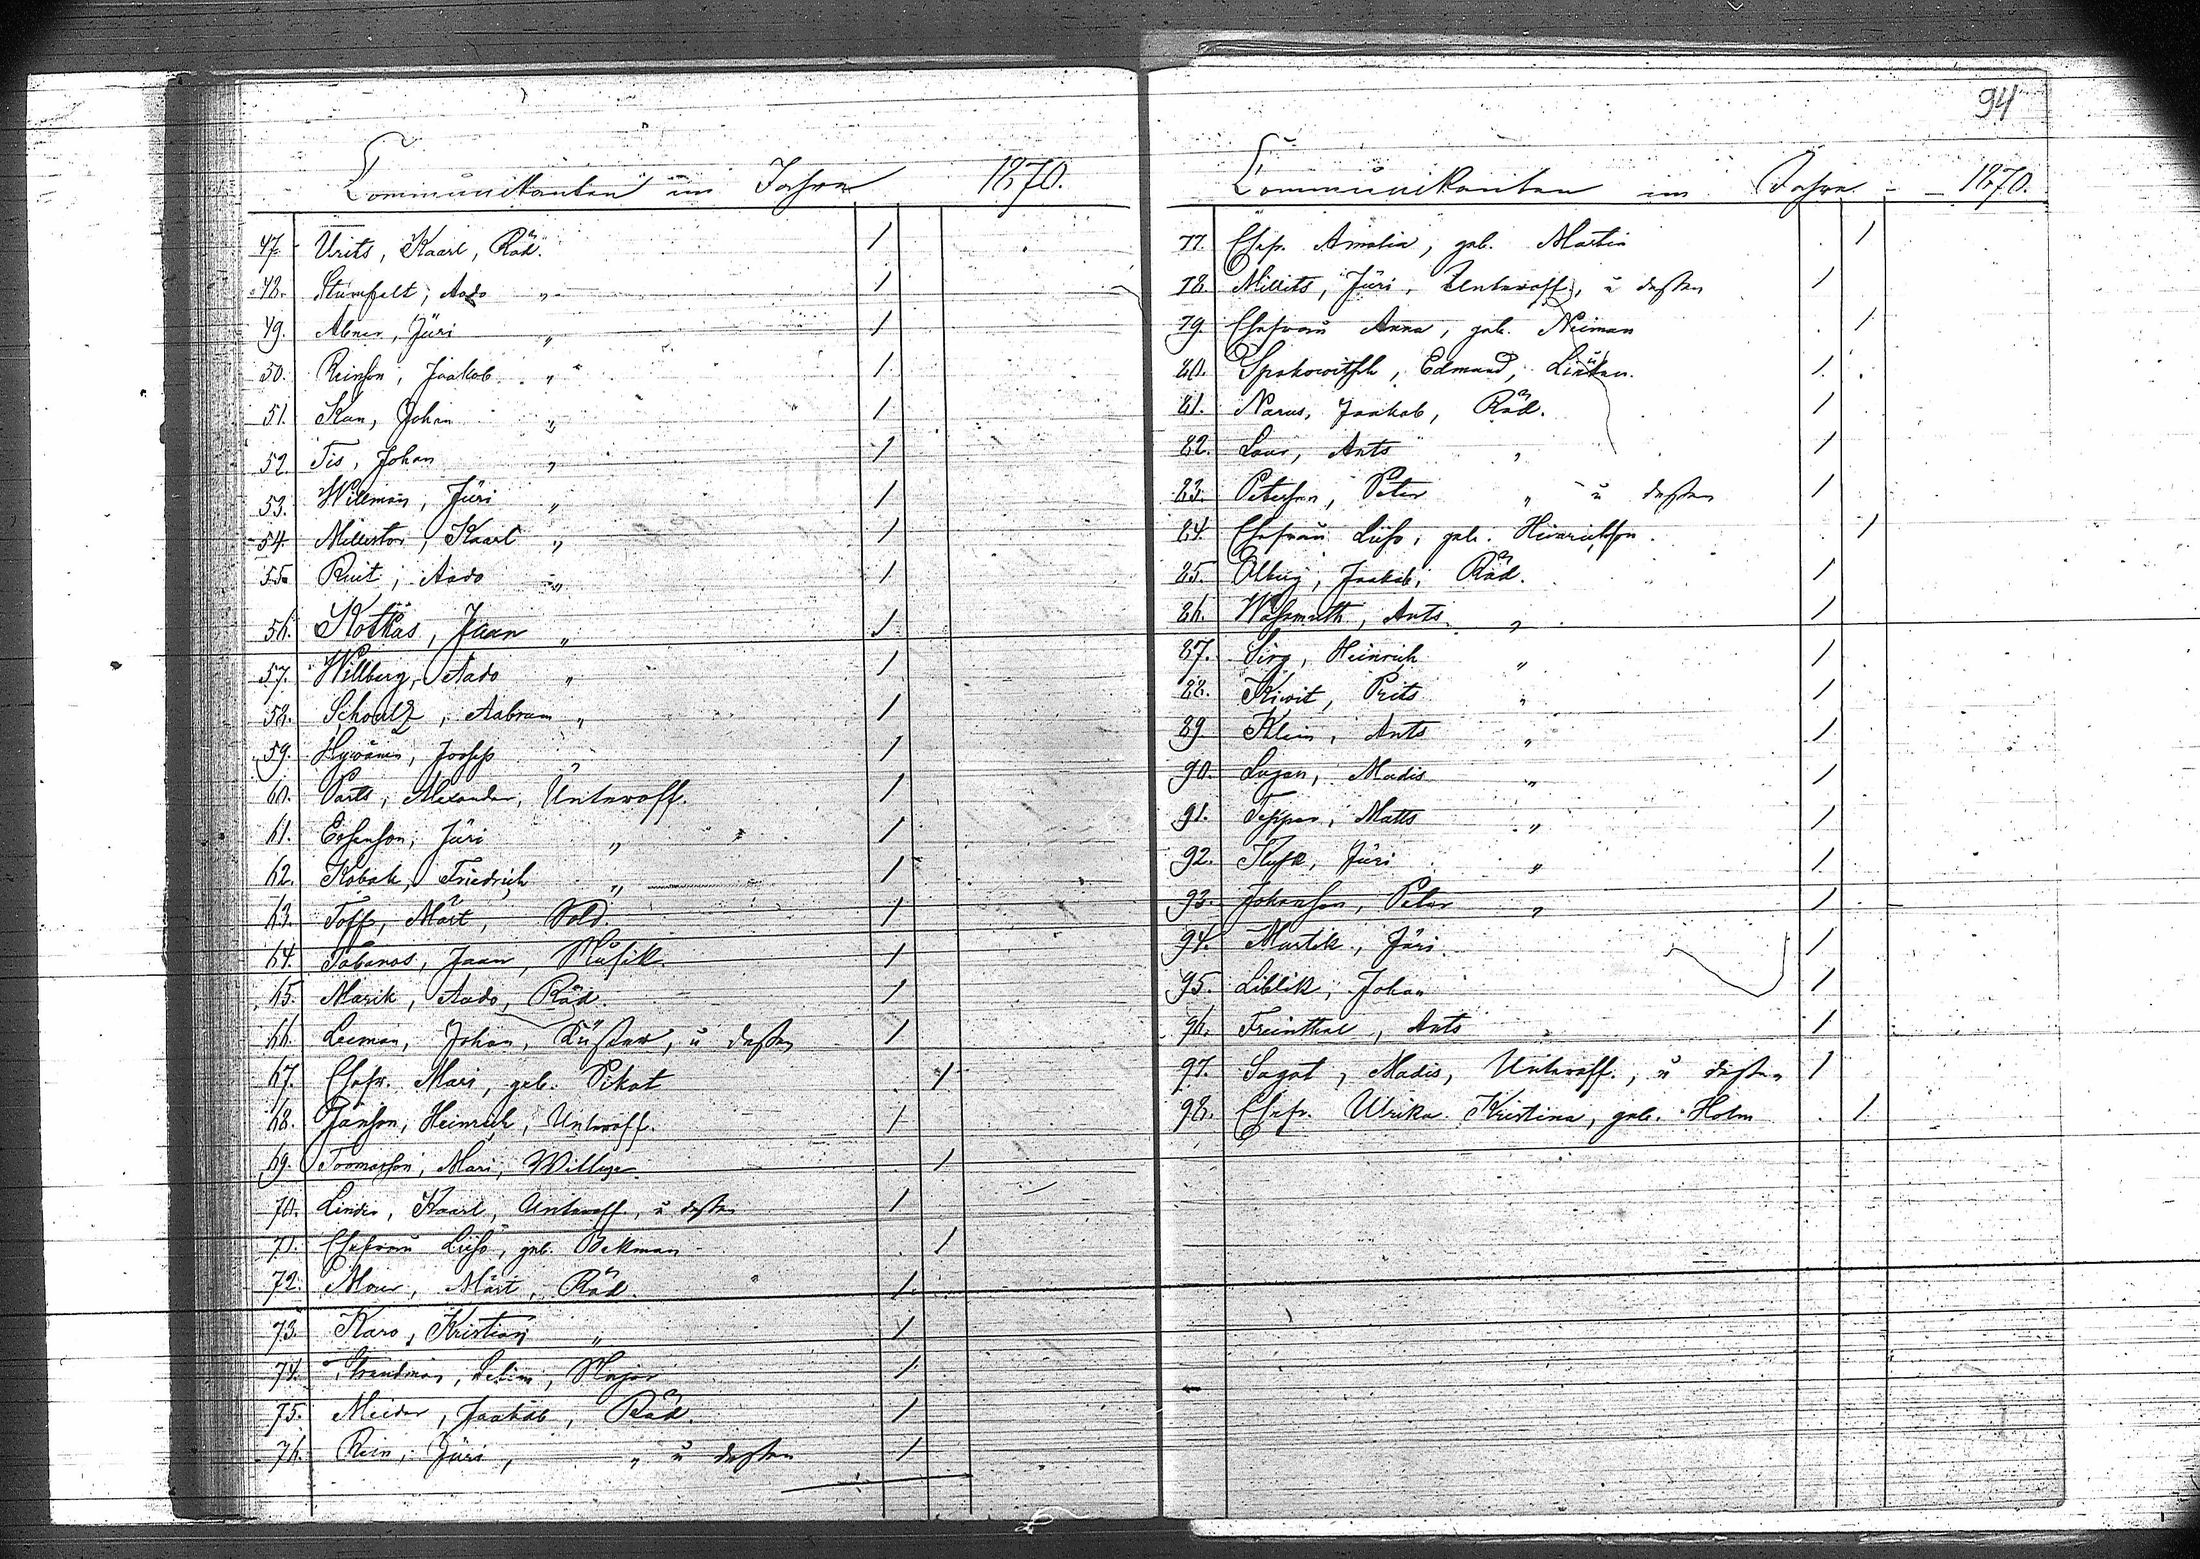 Communikanten im Jahre 1870.
47. Urits, Kaarl, Räd.
48. Stumpelt, Aado "
49. Abner, Jüri "
50. Reinson, Jaakob "
51. Kan, Johan "
52. Tis, Johan "
53. Willman, Jüri "
54. Millistor, Kaarl "
55. Ruit, Aado "
56. Kotkas, Jaan "
57. Willberg, Aado "
58. Schoultz, Aabram "
59. Joosep "
60. Parts, Alexander, Unteroff.
61. Jüri "
62. Kobak, Friedrich "
63. Toff, Märt, Sold.
64. Tabanos, Jaan, Musik.
65. Marik, Aado, Räd.
66. Leeman, Johan, Küster, u dessen
67. Ehefr. Mari, geb. Pikat
68. Janson, Heinrich, Unteroff.
69. Toomasson, Mari,
70. Linder, Kaarl, Unteroff., u dessen
71. Ehefrau Liiso, geb. Bekman
72. Mour, Märt, Räd.
73. Karo, Kristian "
74. Major
75. Meider, Jaakob, Räd.
76. Rein, Jüri, " u dessen
94
Communikanten im Jahre 1870.
77. Ehefr. Amalia, geb. Martin
78. Millits, Jüri, Unteroff., u dessen
79. Ehefrau Anna, geb. Neiman
80. Edmund,
81. Narus, Jaakob, Räd.
82. Laur, Ants "
83. Peterson, Peter " u dessen
84. Ehefrau Liiso, geb. Heinrichson
85. Olbrig, Jaakob, Räd.
86. Wassermuth, Ants "
87. Sirg, Heinrich "
88. Kiwit, Prits "
89. Klein, Ants "
90. Luzan, Madis "
91. Tepper, Matts "
92. Jüri "
93. Johanson, Peter "
94. Martik, Jüri
95. Liblik, Johan
96. Freinthal, Ants "
97. Sagat, Madis, Unteroff., u dessen
98. Ehefr. Ulrika Kristina, geb. Holm